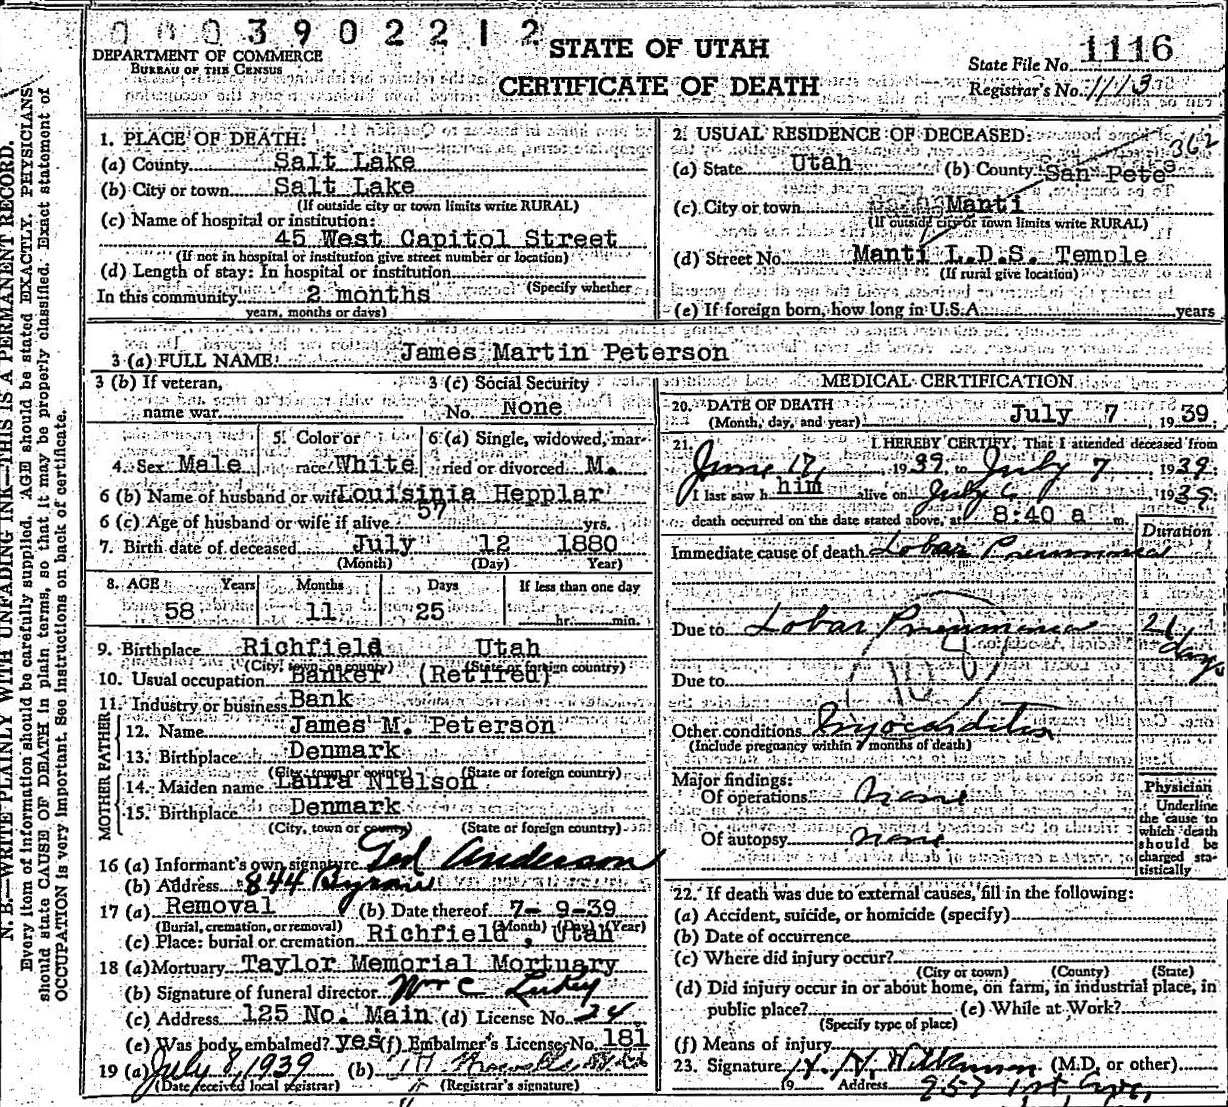 0003902212
STATE OF UTAH
CERTIFICATE OF DEATH
DEPARTMENT OF COMMERCE
BUREAU OF THE CENSUS
State File No. 1116
Registrar's No. 1113
1. PLACE OF DEATH:
(a) County Salt Lake
(b) City or town Salt Lake
(If outside city or town limits write RURAL)
(c) Name of hospital or institution:
45 West Capitol Street
(If not in hospital or institution give street number or location)
(d) Length of stay: In hospital or institution
(Specify whether
In this community 2 months
years, months or days)
2. USUAL RESIDENCE OF DECEASED:
362
(a) State Utah (b) County San Pete
(c) City or town Manti
(If outside city or town limits write RURAL)
(d) Street No. Manti L.D.S. Temple
(If rural give location)
(e) If foreign born, how long in U.S.A. years
3 (a) FULL NAME James Martin Peterson
3 (b) If veteran,
name war
3 (c) Social Security
No. None
4. Sex Male
5. Color or
race White
6 (a) Single, widowed, mar-
ried or divorced M.
6 (b) Name of husband or wife Louisinia Hepplar
6 (c) Age of husband or wife if alive 57 yrs.
7. Birth date of deceased July 12 1880
(Month) (Day) Year)
8. AGE Years Months Days If less than one day
58 11 25 hr. min.
9. Birthplace Richfield Utah
(City, town, or county) (State or foreign country)
10. Usual occupation Banker (Retired)
11. Industry or business Bank
FATHER
12. Name James M. Peterson
13. Birthplace Denmark
(City, town or county) (State or foreign country)
MOTHER
14. Maiden name Laura Nielson
15. Birthplace Denmark
(City, town or county) (State or foreign country)
16 (a) Informant's own signature Ted Anderson
(b) Address 844
17 (a) Removal (b) Date thereof 7-9-39
(Burial, cremation, or removal) (Month) (Day) (Year)
(c) Place: burial or cremation Richfield, Utah
18 (a) Mortuary Taylor Memorial Mortuary
(b) Signature of funeral director
(c) Address 125 No. Main (d) License No. 24
(e) Was body embalmed? yes (f) Embalmer's License No. 181
19 (a) July 8, 1939 (b)
(Date received local registrar) (Registrar's signature)
MEDICAL CERTIFICATION
20. DATE OF DEATH
(Month, day, and year) July 7 1939
21. I HEREBY CERTIFY, That I attended deceased from
June 17, 1939, to July 7 1939
I last saw him alive on July 6 1939
death occurred on the date stated above, at 8:40 a m.
Duration
Immediate cause of death Lobar Pneumonia
Due to Lobar Pneumonia 21 days
Due to
108
Other conditions Myocarditis
(Include pregnancy within 3 months of death)
Major findings:
Of operations none
Of autopsy none
Physician
Underline
the cause to
which death
should be
charged sta-
tistically
22. If death was due to external causes, fill in the following:
(a) Accident, suicide, or homicide (specify)
(b) Date of occurrence
(c) Where did injury occur?
(City or town) (County) (State)
(d) Did injury occur in or about home, on farm, in industrial place, in
public place? (e) While at Work?
(Specify type of place)
(f) Means of injury
23. Signature (M.D. or other)
19 Address 957 1st Ave,
N. B.—WRITE PLAINLY WITH UNFADING INK—THIS IS A PERMANENT RECORD.
Every item of information should be carefully supplied. AGE should be stated EXACTLY. PHYSICIANS
should state CAUSE OF DEATH in plain terms, so that it may be properly classified. Exact statement of
OCCUPATION is very important. See instructions on back of certificate.